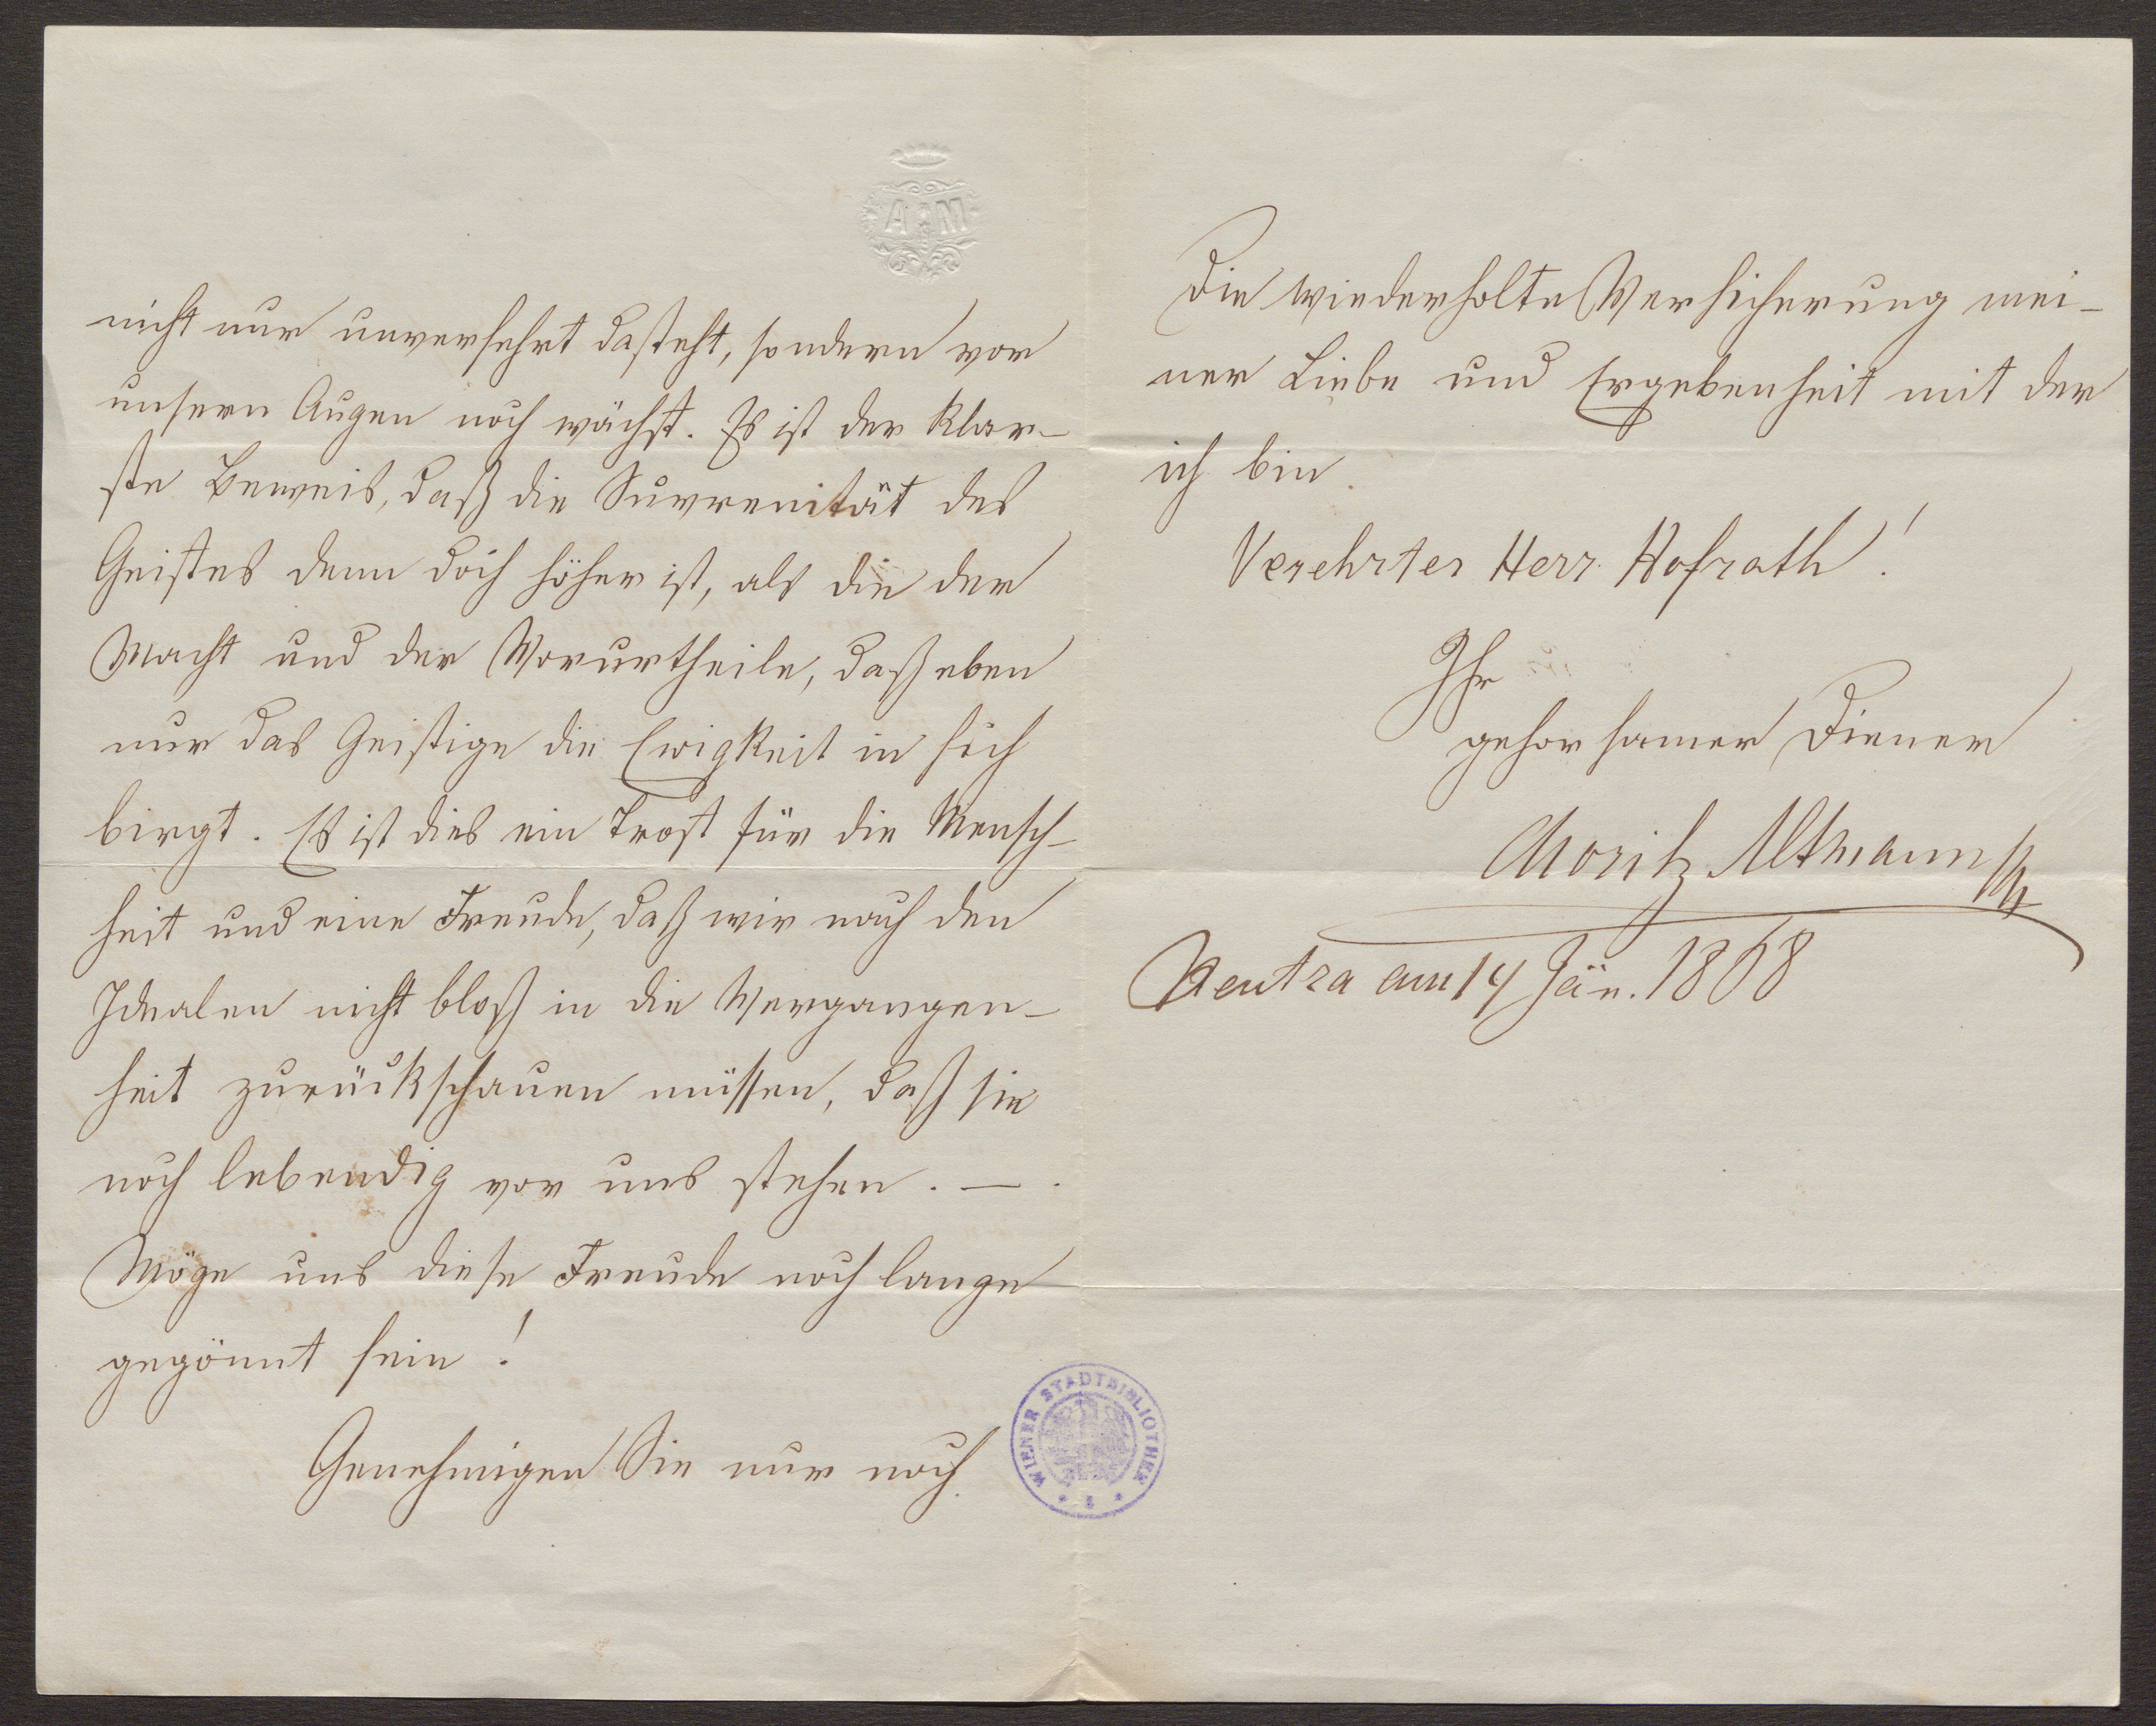 AM
nicht nur unversehrt dasteht, sondern vor
unsern Augen noch wächst. Es ist der klar-
ste Beweis, daß die Suvrenität des
Geistes denn doch höher ist, als die der
Macht und der Vorurtheile, daß eben
nur das Geistige die Ewigkeit in sich
birgt. Es ist dies ein Trost für die Mensch-
heit und eine Freude, daß wir nach den
Idealen nicht bloß in die Vergangen-
heit zurückschauen müssen, daß sie
noch lebendig vor uns stehen. —.
Möge uns diese Freude noch lange
gegönnt sein!
Genehmigen Sie nur noch
WIENER STADTBIBLIOTHEK
die wiederholte Versicherung mei-
ner Liebe und Ergebenheit mit der
ich bin
Verehrter Herr Hofrath!
Ihr
gehorsamer Diener
Moritz Altmann
Neutra am 14 Jän. 1868